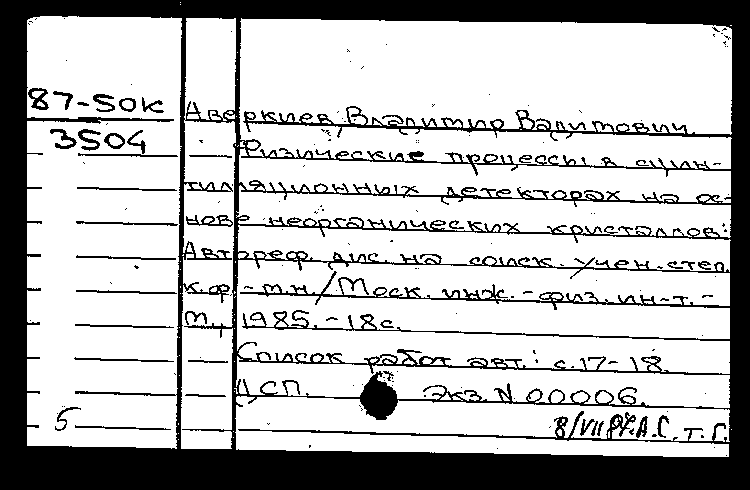 87-50к
3504
Аверкиев, Владимир Вадитович.
Физические процессы в сцин-
тилляционных детекторах на ос-
нове неорганических кристаллов:
Автореф. дис. на соиск. учен. степ.
к.ф.-м.н./Моск. инж.-физ. ин-т.-
М., 1985.-18с.
Список работ авт.: с.17-18.
ДСП. Экз. N 00006.
5
8/VII 87. А.С. т. Г.